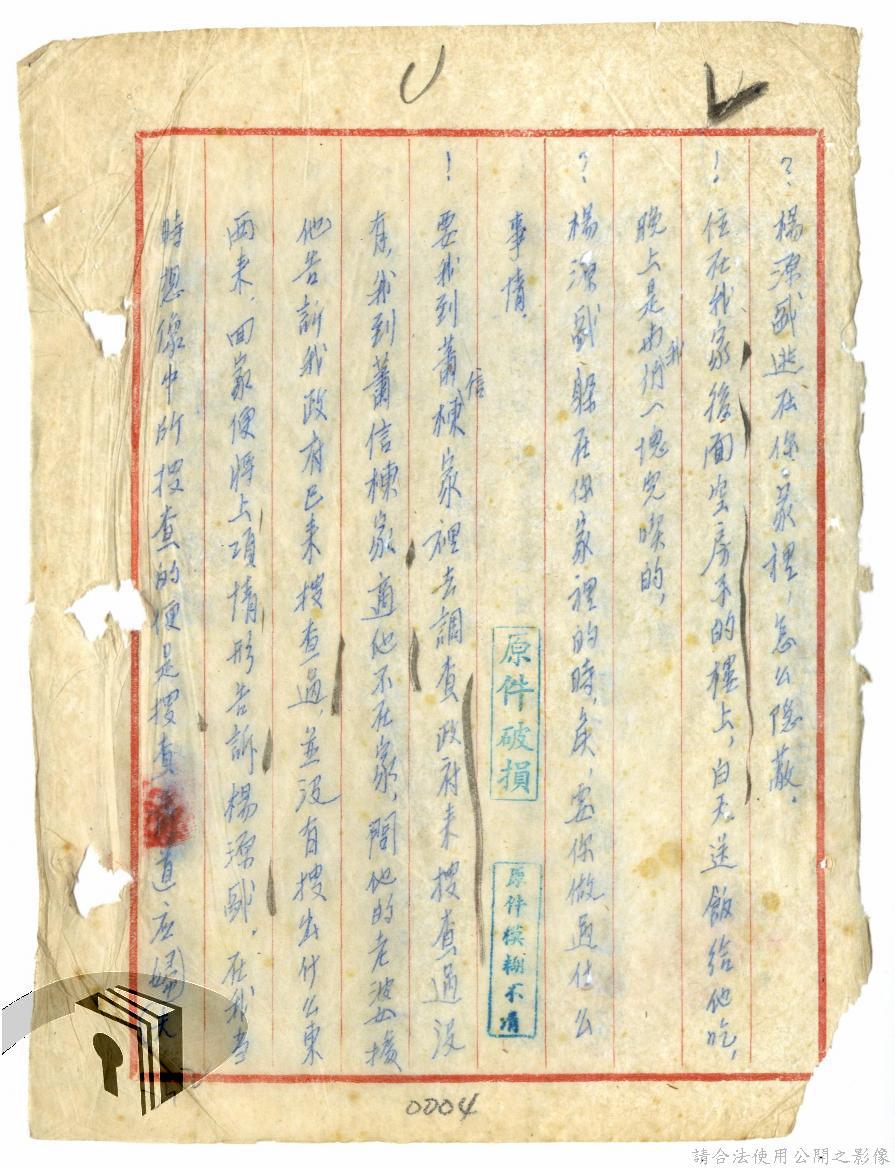 ？楊源盛逃在你家裡，怎么隐蔽．
！住在我家後面空房子的樓上，白天送飯給他吃，
晚上是与我們一塊兒喫的，
？楊源盛躲在你家裡的時候，要你做過什么
事情．
！要我到蕭信棟家裡去調查政府来搜查過沒
有，我到蕭信棟家適他不在家，問他的老婆據
他告訴我政府已来搜查過，並沒有搜出什么東
西来，回家便將上項情形告訴楊源盛．在我當
時想像中的搜查的便是搜查
原件破損
原件模糊不清
0004
請合法使用公開之影像